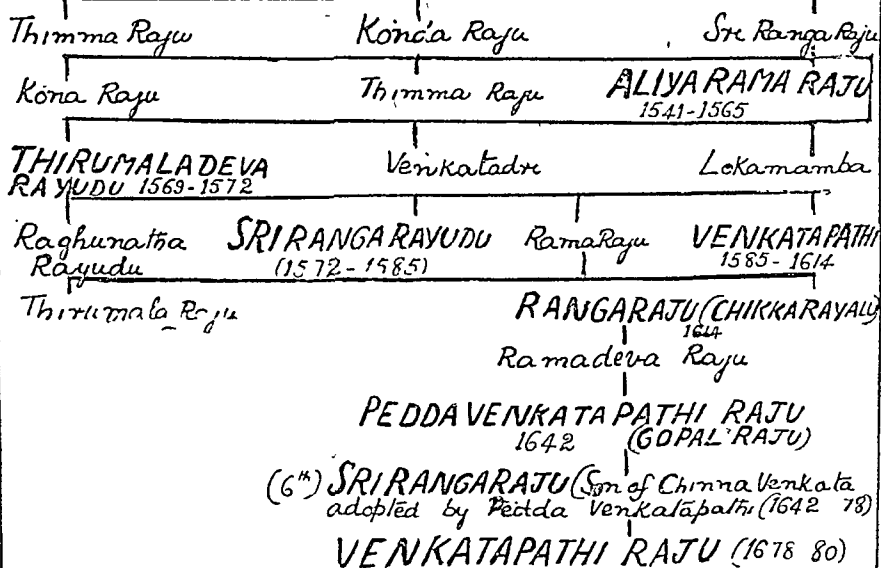 Thimma Raju Konda Raju Sri Ranga Raju
Kona Raju Thimma Raju ALIYA RAMA RAJU
1541-1565
THIRUMALADEVA Venkatadri Lokamamba
RAYUDU 1569-1572
Raghunatha SRI RANGA RAYUDU Rama Raju VENKATAPATHI
Rayudu (1572-1585) 1585-1614
Thirumala Raju RANGARAJU (CHIKKARAYALU)
1614
Ramadeva Raju
PEDDAVENKATAPATHI RAJU
1642 (GOPAL RAJU)
(6th) SRIRANGARAJU (Son of Chinna Venkata
adopted by Pedda Venkatapathi (1642 78)
VENKATAPATHI RAJU (1678 80)